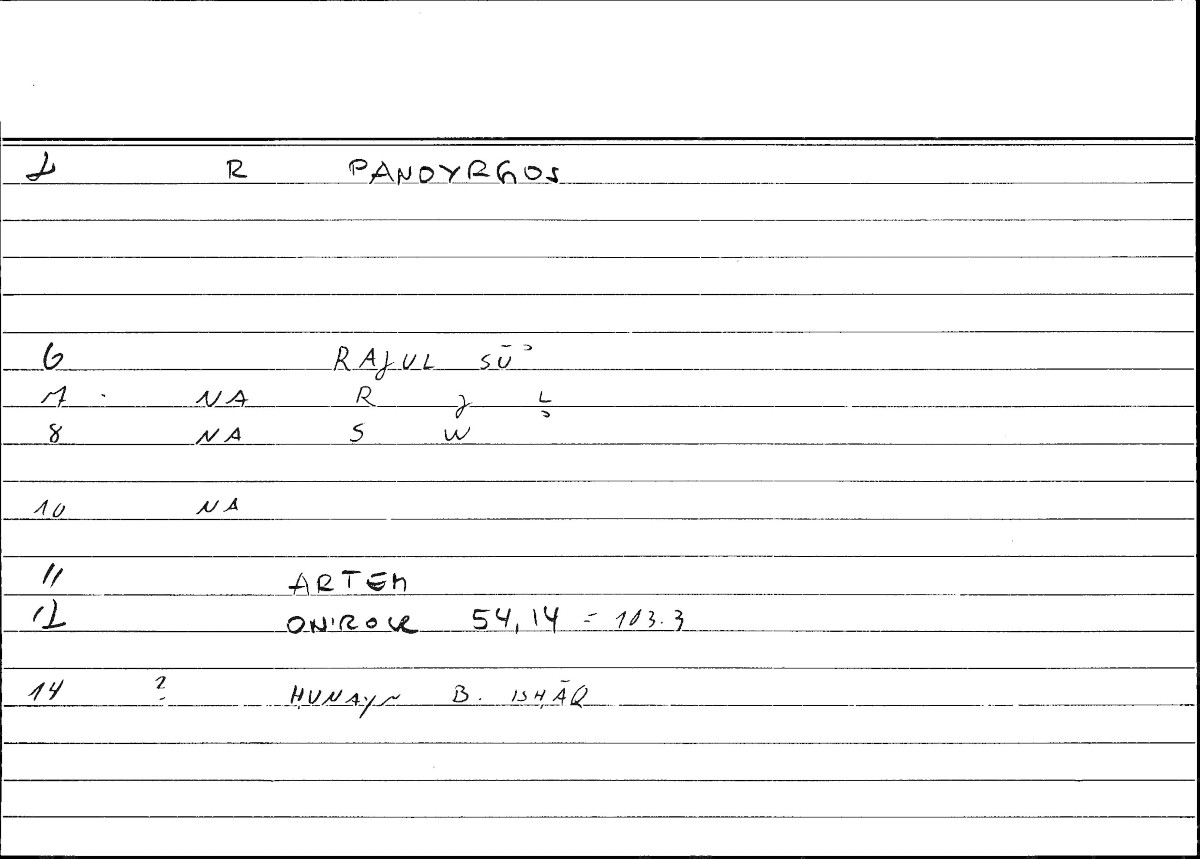 2 R PANOYRGOS
6 RAJUL SŪʾ
7 NA R J L
8 NA S W ʾ
10 NA
11 ARTEM
12 ONIROCR 54,14 = 103.3
14 ? ḤUNAYN B. ISḤĀQ